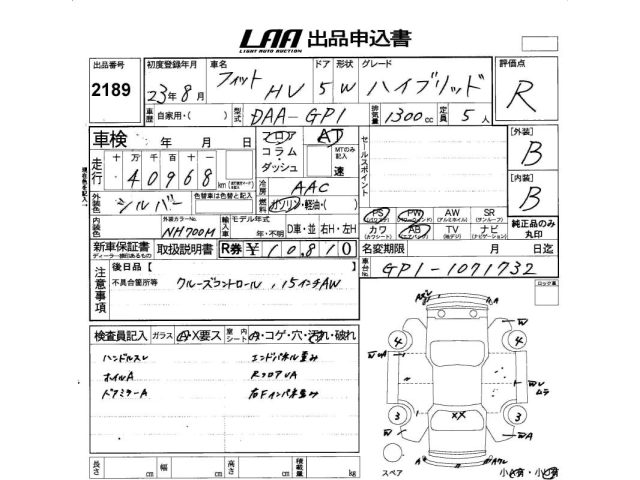 LAA 出品申込書
LIGHT AUTO AUCTION
出品番号 初度登録年月 車名 ドア 形状 グレード 評価点
2189 23年8月 フィット HV 5 W ハイブリッド R
車歴 自家用・( ) 型式 DAA-GP1 排気量 1300cc 定員 5人
車検 年 月 日 フロア AT
コラム・ MTのみ記入
ダッシュ 速
走行 十 万 千 百 十
40968 km
現在色を記入
外装色 シルバー 色替車は色替と記入
冷房 AAC
燃料 ガソリン・軽油・( )
セールスポイント
[外装]
B
[内装]
B
純正品のみ
丸印
PS PW AW SR
(パワステ) (パワーウィンドウ) (アルミホイル) (サンルーフ)
カワ AB TV ナビ
(カワシート) (エアバック) (地デジ) (ナビゲーション)
内装色 外装カラーNo. NH700M 輸入車 モデル年式 年・不明 D車・並 右H・左H
新車保証書 取扱説明書 R券 ¥10,810
ディーラー捺印あるもの
名変期限 月 日迄
車台No. GP1-1071732
注意事項 後日品【 】
不具合箇所等 クルーズコントロール, 15インチAW
ロック車
検査員記入 ガラス A・X要ス 室内シート A・コゲ・穴・汚れ・破れ
ハンドルスレ エンドパネル歪み
ホイルA RフロアUA
ドアミラーA 右Fインパネ歪み
4 4
3 3
XX
ムラ
長さ cm 幅 cm 高さ cm 積載量 kg
スペア